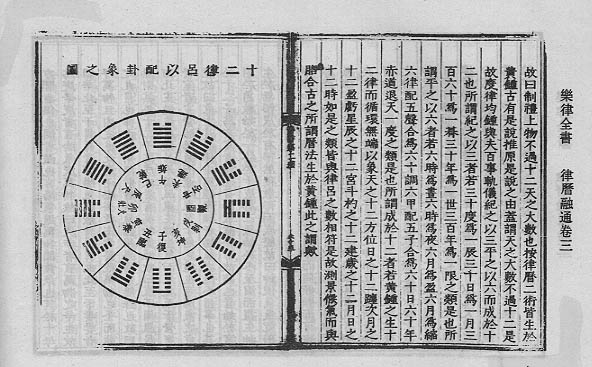 樂律全書　律曆融通卷三
故曰制禮上物不過十二天之大數也按律曆二術皆生於
黃鍾古有是說推原是說之由蓋謂天之大數不過十二是
故度律均鍾與夫百事軌儀紀之以三平之以六而成於十
二也所謂紀之以三者若三十度爲一辰三十日爲一月三
百六十爲一朞三十年爲一世三百年爲一限之類是也所
謂平之以六者若六時爲晝六時爲夜六月爲盈六月爲縮
六律配五聲合爲六十調六甲配五子合爲六十日六十年
赤道退天一度之類是也所謂成於十二者若黃鍾之生十
二律而循環無端以象天之十二方位日之十二躔次月之
十二盈虧星辰之十二宮斗杓之十二建歲之十二月日之
十二時如是之類皆與律呂之數相符是故測景候氣而與
脗合古之所謂曆法生於黃鍾此之謂歟
十二律呂以配卦象之圖
子復
丑